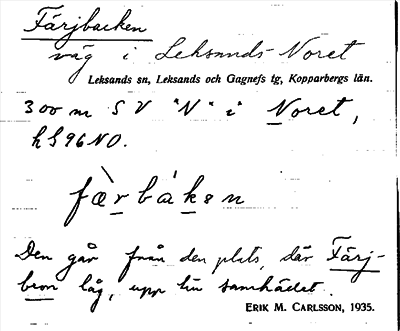 Färjbacken
väg i Leksands-Noret
Leksands sn, Leksands och Gagnefs tg, Kopparbergs län.
300 m SV "N" i Noret,
h S96NO.
fæ̀rbáken
Den går från den plats, där Färj-
bron låg, upp till samhället.
ERIK M. CARLSSON, 1935.